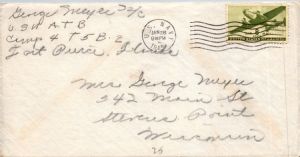 George Meyer S2/c
U.S.N. A T B
Camp 4 T5B-2
Fort Pierce, Florida
U.S. NAVY
JAN 28
Mrs George Meyer
342 Main St
Stevens Point
Wisconsin